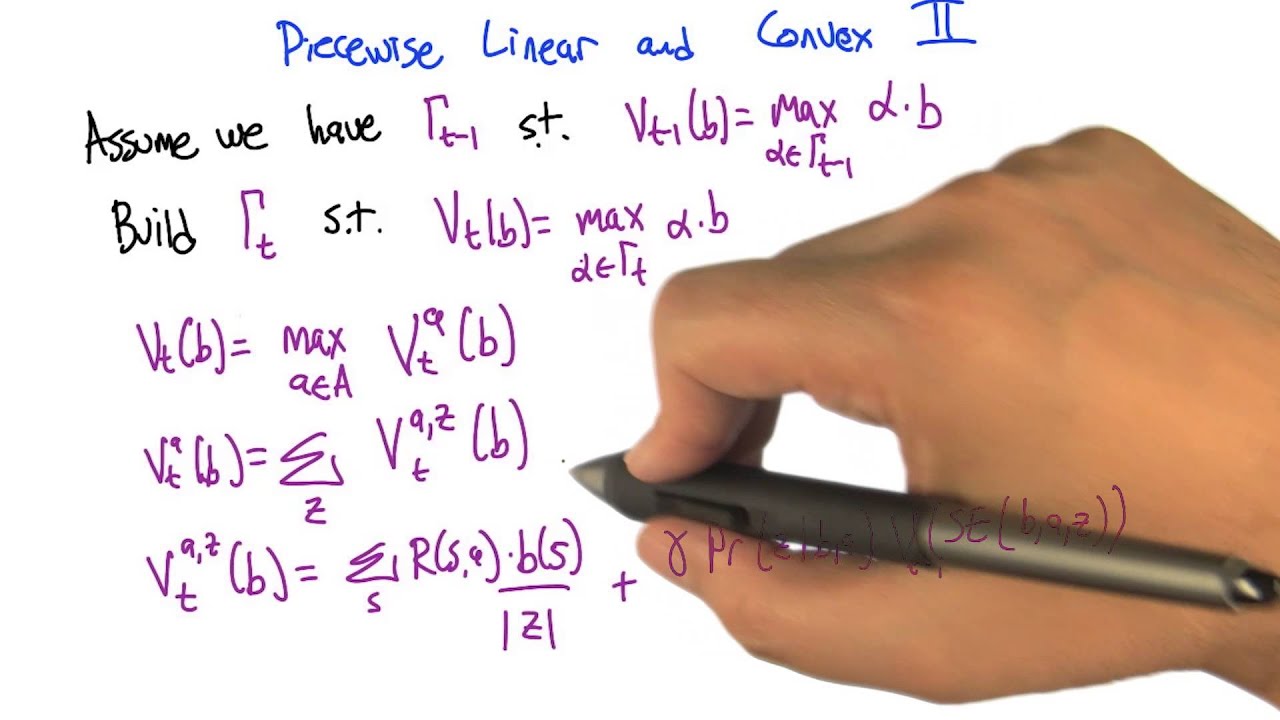 Piecewise Linear and Convex II
Assume we have Γt-1 s.t. Vt-1(b) = max α∈Γt-1 α·b
Build Γt s.t. Vt(b) = max α∈Γt α·b
Vt(b) = max a∈A Vt^a(b)
Vt^a(b) = Σz Vt^a,z(b)
Vt^a,z(b) = Σs R(s,a)·b(s) / |z| + γ Pr(z|b,a) V (SE(b,a,z))